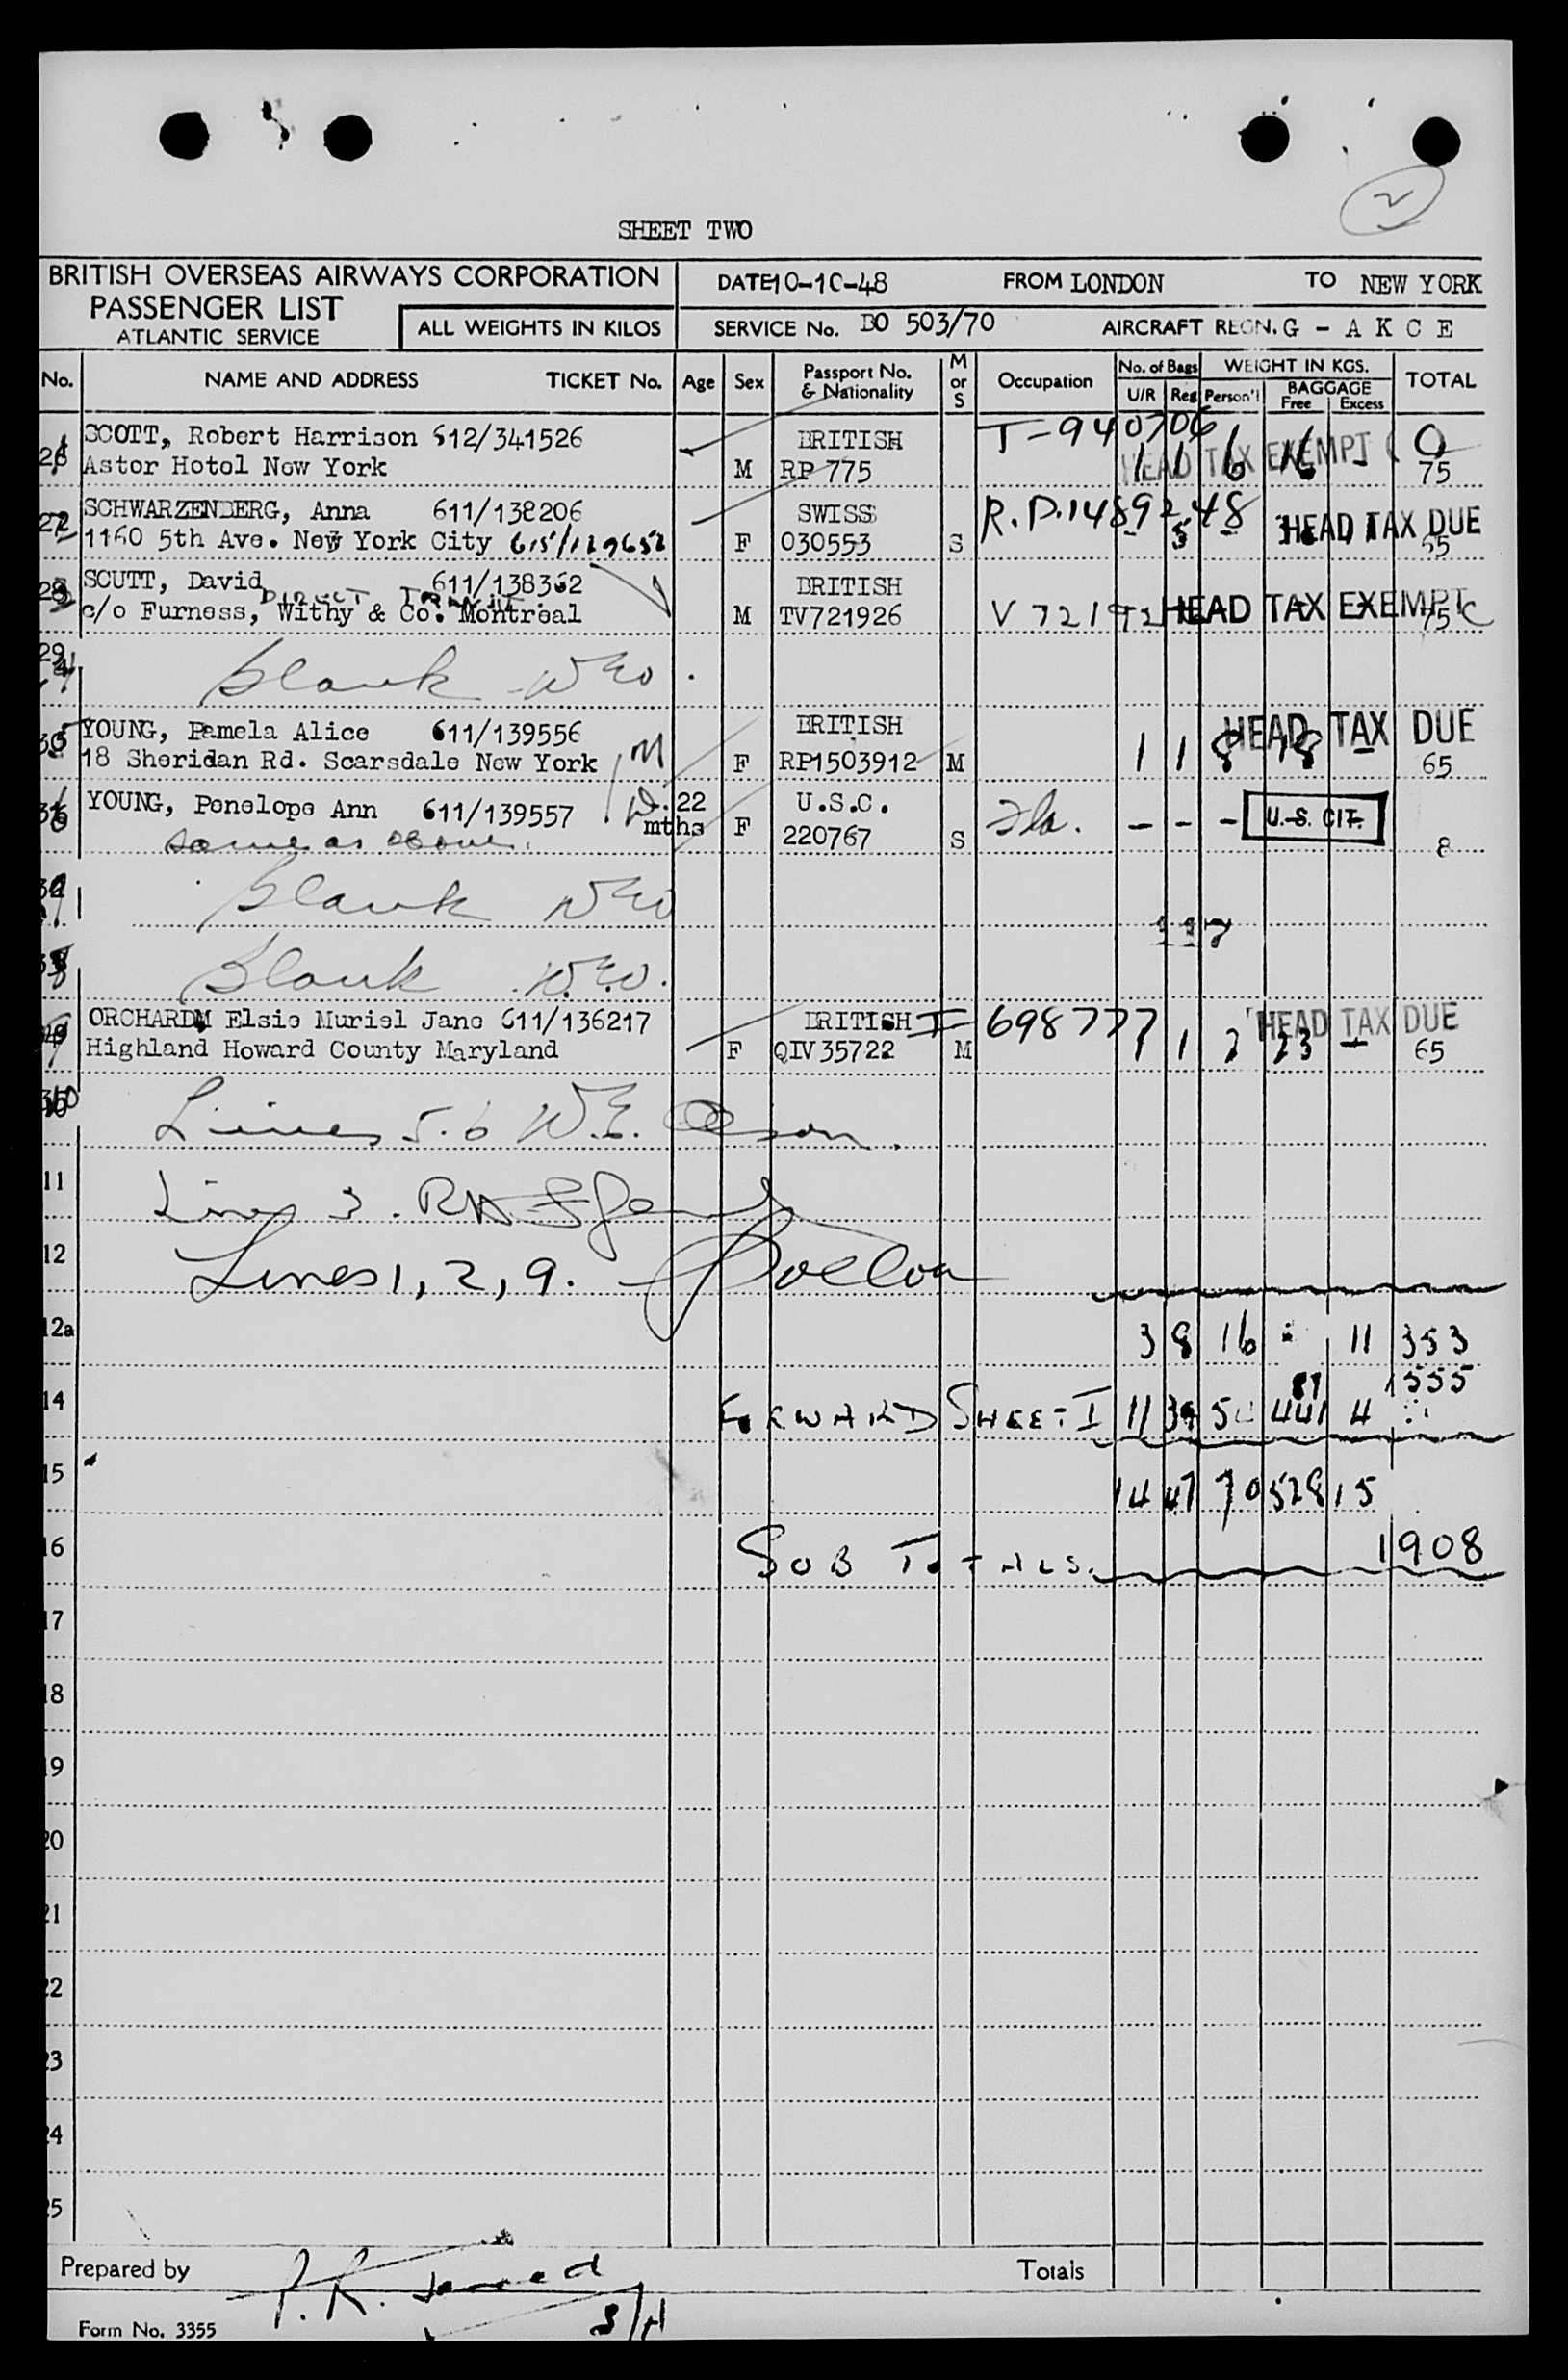 2
SHEET TWO
BRITISH OVERSEAS AIRWAYS CORPORATION
PASSENGER LIST
ATLANTIC SERVICE
ALL WEIGHTS IN KILOS
DATE 10-10-48 FROM LONDON TO NEW YORK
SERVICE No. BO 503/70 AIRCRAFT REGN. G - A K C E
No. NAME AND ADDRESS TICKET No. Age Sex Passport No. & Nationality M or S Occupation No. of Bags U/R Reg WEIGHT IN KGS. Person'l BAGGAGE Free Excess TOTAL
SCOTT, Robert Harrison 512/341526 BRITISH T-940706 HEAD TAX EXEMPT
1 Astor Hotel New York M RP 775 1 1 6 16 - 75
SCHWARZENBERG, Anna 611/138206 SWISS R.P.1489248 HEAD TAX DUE
2 1160 5th Ave. New York City 615/129652 F 030553 S - 5 - 55
SCUTT, David 611/138362 BRITISH
DIRECT TRANSIT
3 c/o Furness, Withy & Co. Montreal M TV721926 HEAD TAX EXEMPT 75
4 Blank WEO.
YOUNG, Pamela Alice 611/139556 BRITISH HEAD TAX DUE
5 18 Sheridan Rd. Scarsdale New York M F RP1503912 M 1 1 8 18 - 65
6 YOUNG, Penelope Ann 611/139557 D. 22 mths F U.S.C. Fla. - - - U.S. CIT.
same as above. 220767 S 8
7 Blank WEO
8 Blank W.E.O.
ORCHARD, Elsie Muriel Jane 611/136217 BRITISH T-698777 HEAD TAX DUE
9 Highland Howard County Maryland F QIV35722 M 1 1 2 23 - 65
10 Lines 5.6 W.E. Olson.
11 Line 3.
12 Lines 1, 2, 9.
12a 3 8 16 11 353
87 1555
14 FORWARD SHEET I 11 39 54 441 4
15 14 47 70 528 15
16 SUB TOTALS. 1908
17
18
19
20
21
22
23
24
25
Prepared by Totals
Form No. 3355